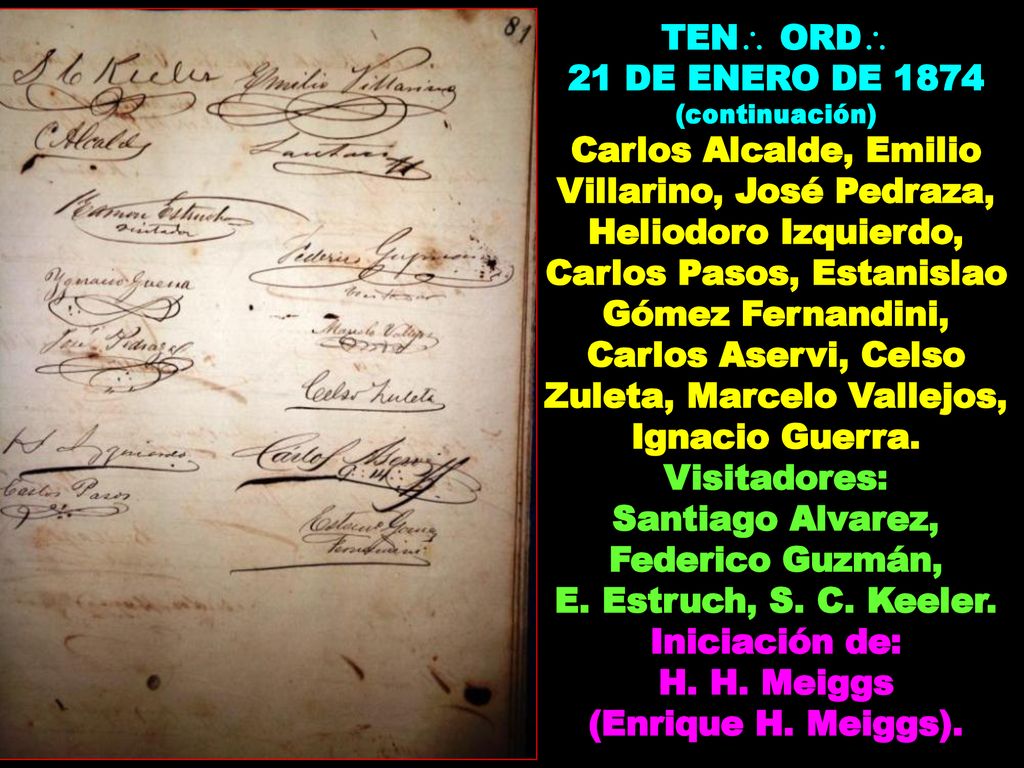 81
S C Keeler
Emilio Villarino
C Alcalde
Ramon Estruch
visitador
Federico Guzman
visitador
Ygnacio Guerra
Marcelo Vallejos
José Pedraza
Celso Zuleta
H Izquierdo
Carlos Aservi
Carlos Pasos
Gomez
Fernandini
TEN∴ ORD∴
21 DE ENERO DE 1874
(continuación)
Carlos Alcalde, Emilio
Villarino, José Pedraza,
Heliodoro Izquierdo,
Carlos Pasos, Estanislao
Gómez Fernandini,
Carlos Aservi, Celso
Zuleta, Marcelo Vallejos,
Ignacio Guerra.
Visitadores:
Santiago Alvarez,
Federico Guzmán,
E. Estruch, S. C. Keeler.
Iniciación de:
H. H. Meiggs
(Enrique H. Meiggs).